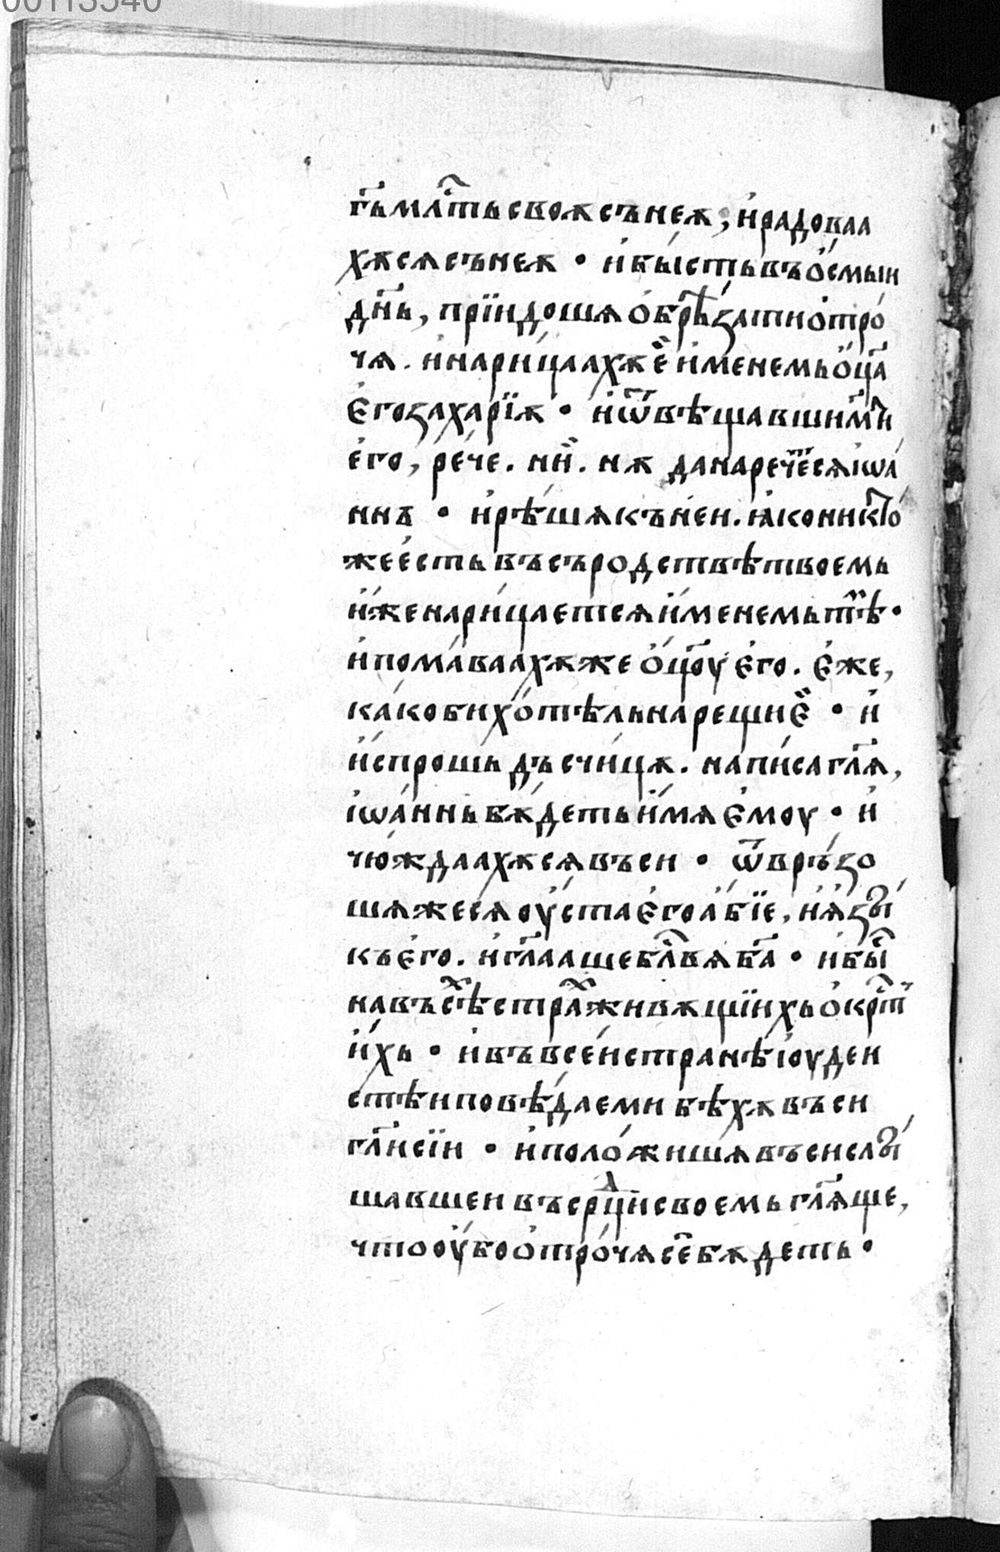 00113540
г҃ь мл҃ть своѫ съ неѫ, и҆ радоваа
хѫсѧ съ неѫ · и҆ бы́сть въ о҆́смыи
дн҃ь, прїидошѧ о҆брѣ́зати о҆тро́
чѧ . и҆ нари́цаахѫ е҆̀ и҆́менемь ѻ҆ц҃а
є҆го заха́рїѫ · и҆ ѿвѣщавши мт҃и
е҆го, ре́че . ни̏ . нѫ да наречеⷮсѧ і҆ѡа́
ннъ · и҆ рѣ́шѧ къ неи . ꙗ҆ко никто́
же е҆́сть въ съродствѣ твоемь
и҆́же нарица́етсѧ и҆́менемь тѣⷨ ·
и҆ пома́ваахѫ же ѻ҆ц҃оу є҆го . є҆́же,
ка́ко би хо́тѣль нарещи є҆̀ · и҆
и҆спрошь дъсчи́цѫ . напи́са гл҃ѧ,
і҆ѡа́ннь бѫ́деть и҆́мѧ є҆моу · и҆
чю́ждаахѫсѧ въси · ѿвръ́зо
шѧжесѧ оу҆ста є҆го а҆́бїе, и҆ ѧ҆зы́
къ є҆го . и҆ гл҃ааше блв҃ѧ б҃а · и҆ быⷭ҇
на въсѣⷯ страⷯ живѫщїихь ѻ҆крⷭ҇ть
и҆́хь · и҆ въ всеи́ странѣ і҆оудеи
стѣи повѣ́даеми бѣ́хѫ въси
гл҃и сїи · и҆ поло́жишѧ въси слы́
шавшеи въ срⷣци своемь гл҃ѧще,
что оу҆́бо о҆тро́чѧ се҆̀ бѫ́деть ·